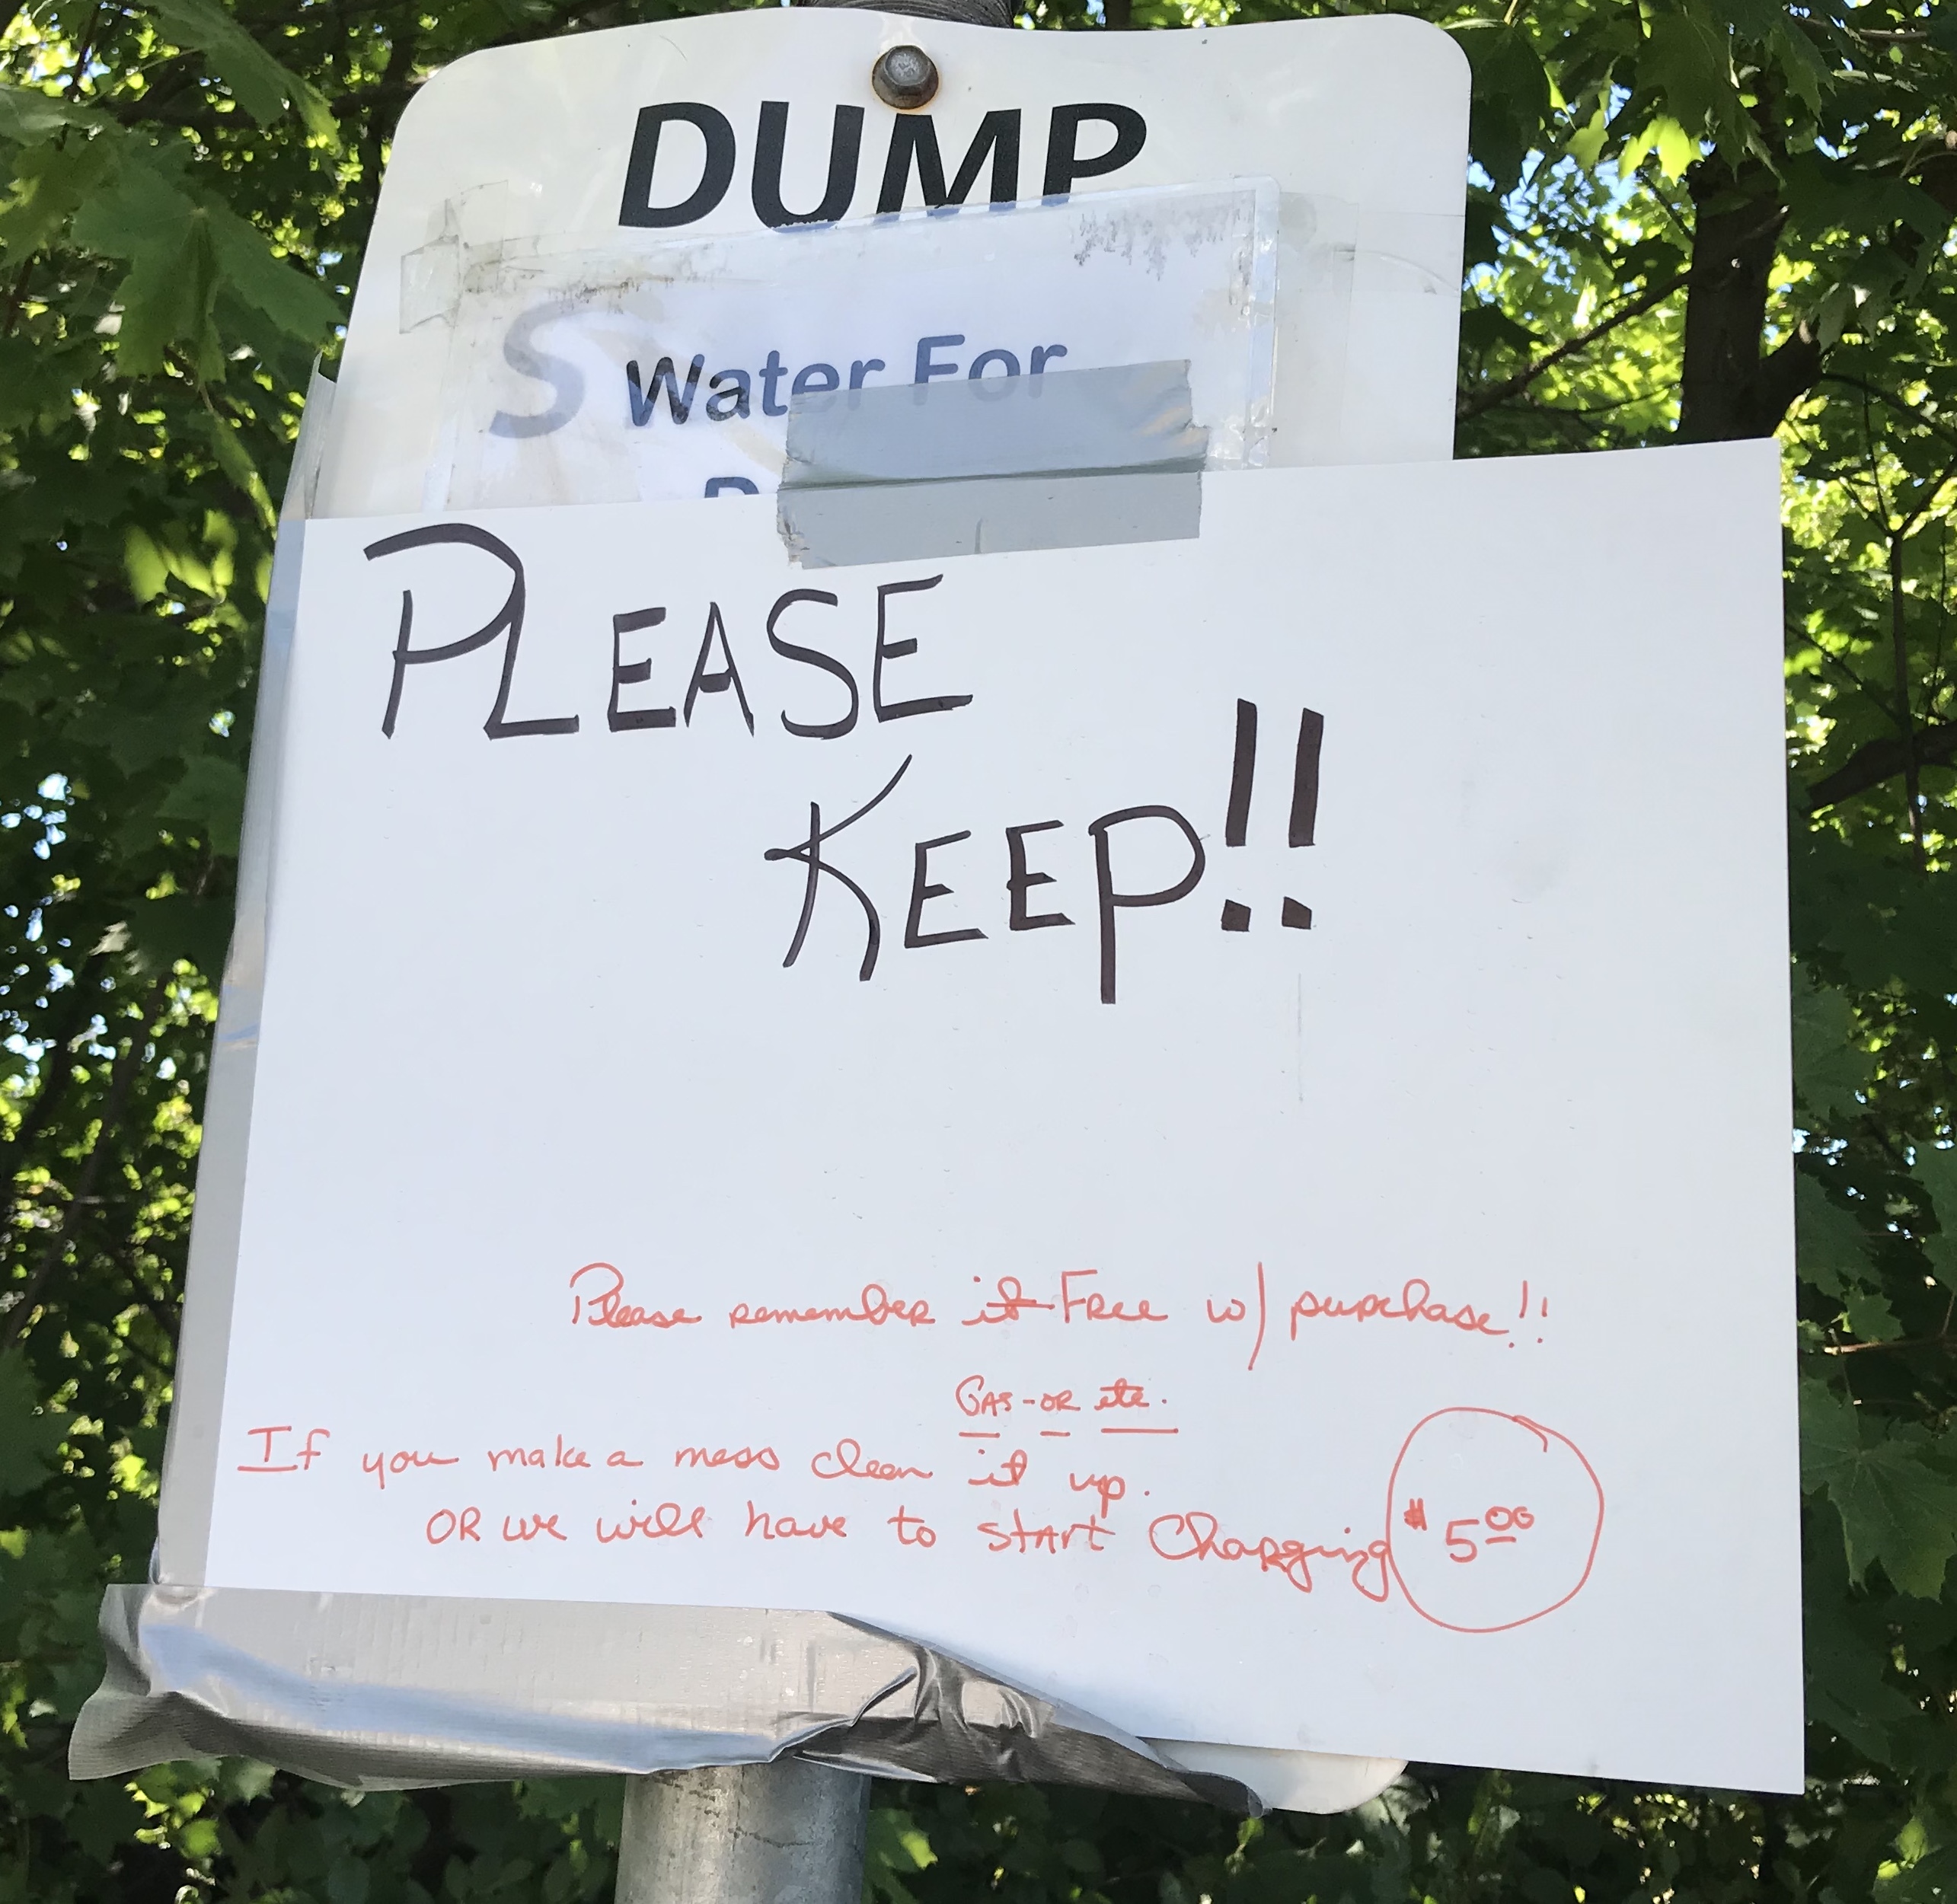 DUMP
S
Water For
PLEASE
KEEP!!
Please remember it FREE w/ purchase!!
GAS-OR etc.
If you make a mess clean it up.
OR we will have to start Charging $5.00